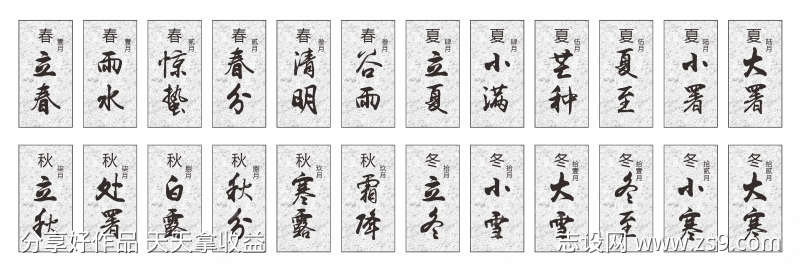 春 壹月 立春
春 壹月 雨水
春 贰月 惊蛰
春 贰月 春分
春 叁月 清明
春 叁月 谷雨
夏 肆月 立夏
夏 肆月 小满
夏 伍月 芒种
夏 伍月 夏至
夏 陆月 小署
夏 陆月 大署
秋 柒月 立秋
秋 柒月 处署
秋 捌月 白露
秋 捌月 秋分
秋 玖月 寒露
秋 玖月 霜降
冬 拾月 立冬
冬 拾月 小雪
冬 拾壹月 大雪
冬 拾壹月 冬至
冬 拾贰月 小寒
冬 拾贰月 大寒
分享好作品 天天拿收益
志设网 www.zs9.com